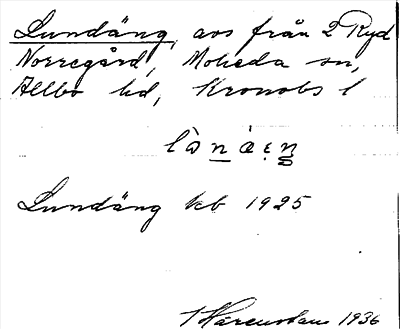 Lundäng, avs från 2 Ryd
Norregård, Moheda sn,
Allbo hd, Kronobs l
Lundäng kb 1925
1936